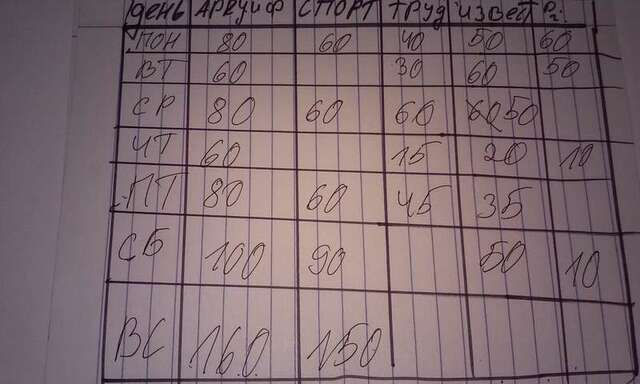 день спорт труд
ПОН 80 60 40 50 60
ВТ 60 30 60 50
СР 80 60 60 50
ЧТ 60 15 20 10
ПТ 80 60 45 35
СБ 100 90 50 10
ВС 160 150